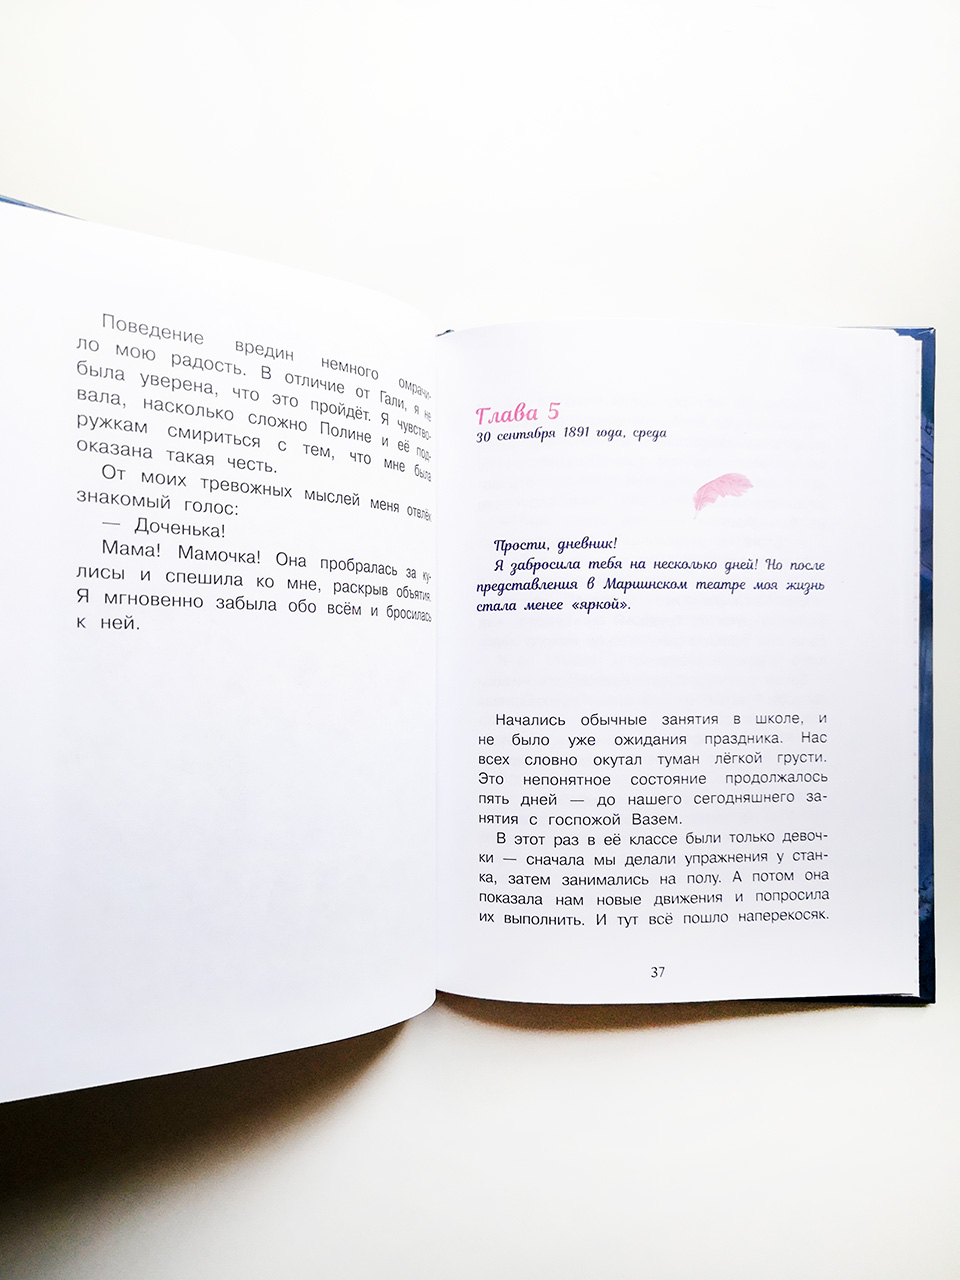 Поведение вредин немного омрачи-
ло мою радость. В отличие от Гали, я не
была уверена, что это пройдёт. Я чувство-
вала, насколько сложно Полине и её под-
ружкам смириться с тем, что мне была
оказана такая честь.
От моих тревожных мыслей меня отвлёк
знакомый голос:
— Доченька!
Мама! Мамочка! Она пробралась за ку-
лисы и спешила ко мне, раскрыв объятия.
Я мгновенно забыла обо всём и бросилась
к ней.
Глава 5
30 сентября 1891 года, среда
Прости, дневник!
Я забросила тебя на несколько дней! Но после
представления в Мариинском театре моя жизнь
стала менее «яркой».
Начались обычные занятия в школе, и
не было уже ожидания праздника. Нас
всех словно окутал туман лёгкой грусти.
Это непонятное состояние продолжалось
пять дней — до нашего сегодняшнего за-
нятия с госпожой Вазем.
В этот раз в её классе были только девоч-
ки — сначала мы делали упражнения у стан-
ка, затем занимались на полу. А потом она
показала нам новые движения и попросила
их выполнить. И тут всё пошло наперекосяк.
37